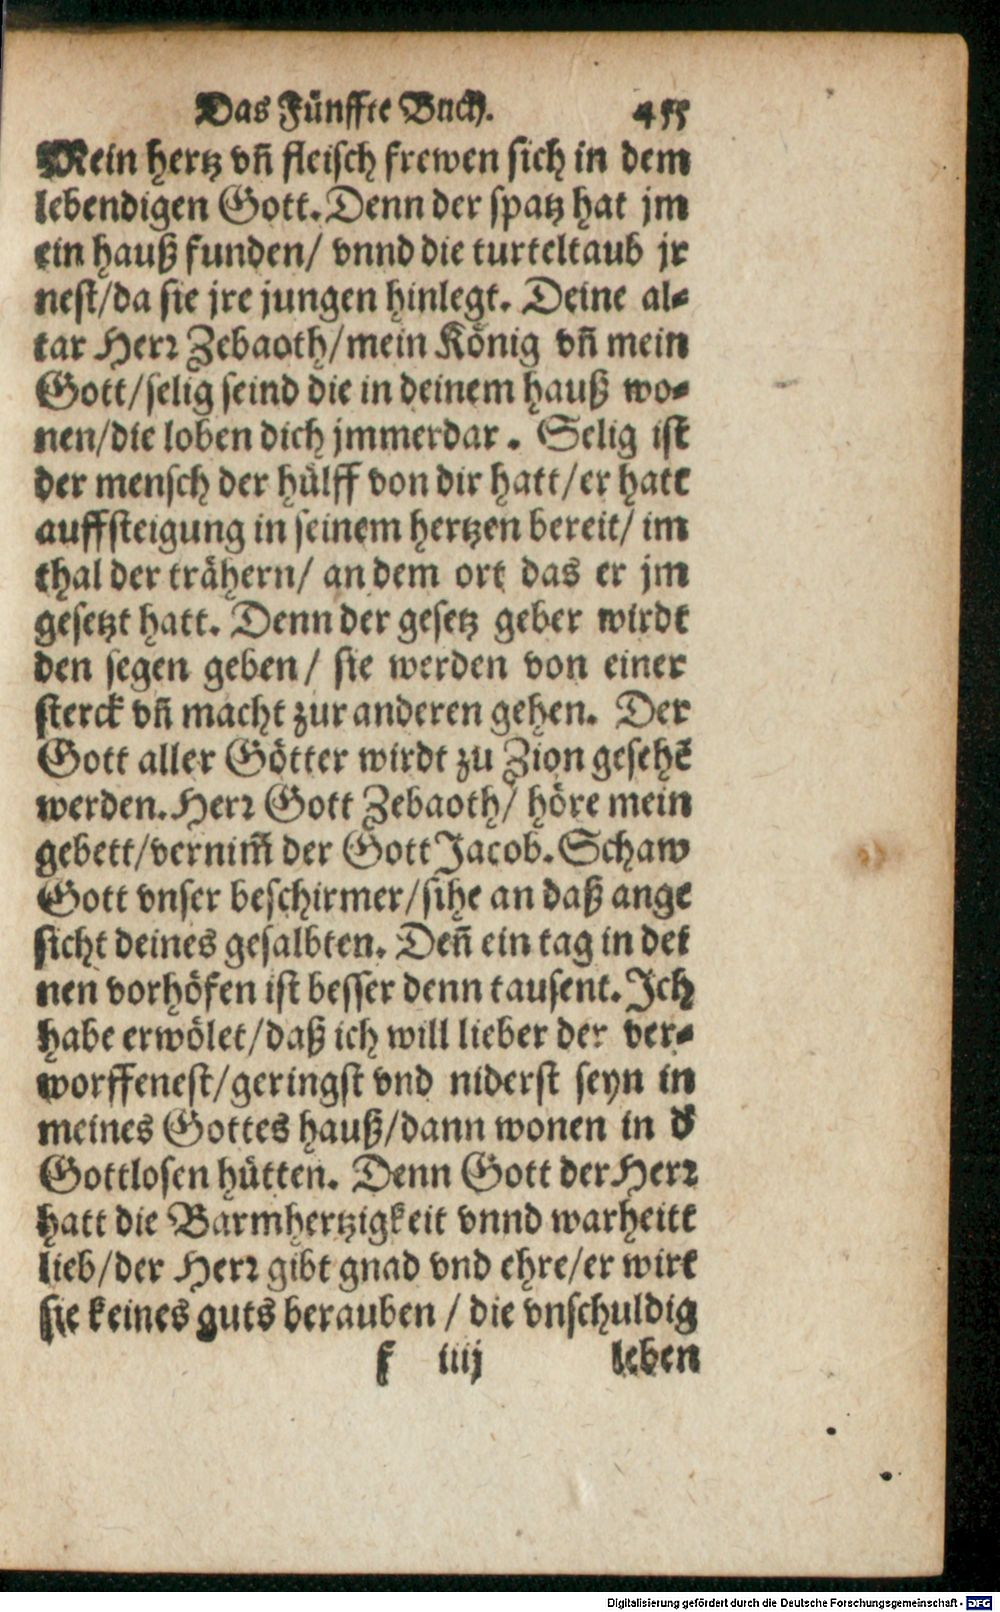 Das Fünffte Buch. 455
Mein hertz vñ fleisch frewen sich in dem
lebendigen Gott. Denn der spatz hat jm
ein hauß funden/ vnnd die turteltaub jr
nest/da sie jre jungen hinlegt. Deine al-
tar Herr Zebaoth/mein König vñ mein
Gott/selig seind die in deinem hauß wo-
nen/die loben dich jmmerdar. Selig ist
der mensch der hülff von dir hatt/er hatt
auffsteigung in seinem hertzen bereit/ im
thal der trähern/ an dem ort das er jm
gesetzt hatt. Denn der gesetz geber wirdt
den segen geben/ sie werden von einer
sterck vñ macht zur anderen gehen. Der
Gott aller Götter wirdt zu Zion gesehē
werden. Herr Gott Zebaoth/ höre mein
gebett/vernim̄ der Gott Jacob. Schaw
Gott vnser beschirmer/sihe an daß ange
sicht deines gesalbten. Deñ ein tag in dei
nen vorhöfen ist besser denn tausent. Ich
habe erwölet/daß ich will lieber der ver-
worffenest/geringst vnd niderst seyn in
meines Gottes hauß/dann wonen in d̕
Gottlosen hütten. Denn Gott der Herr
hatt die Barmhertzigkeit vnnd warheitt
lieb/der Herr gibt gnad vnd ehre/er wirt
sie keines guts berauben / die vnschuldig
f iiij leben
Digitalisierung gefördert durch die Deutsche Forschungsgemeinschaft - DFG